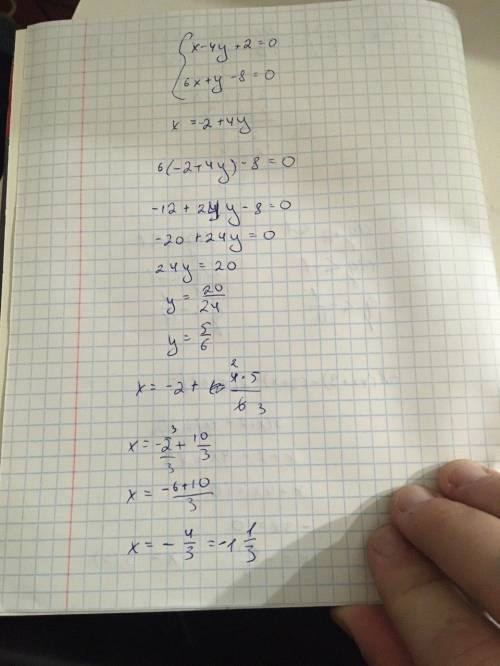 x-4y+2=0
6x+y-8=0
x=-2+4y
6(-2+4y)-8=0
-12+24y-8=0
-20+24y=0
24y=20
y=20/24
y=5/6
x=-2+ 2 4·5/6 3
x=-2 3/3+10/3
x=-6+10/3
x=-4/3=-1 1/3